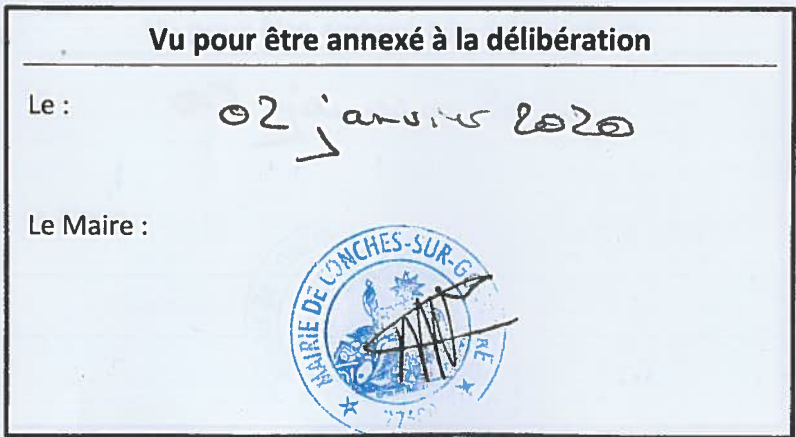 Vu pour être annexé à la délibération
Le : 02 janvier 2020
Le Maire :
MAIRIE DE CONCHES-SUR-